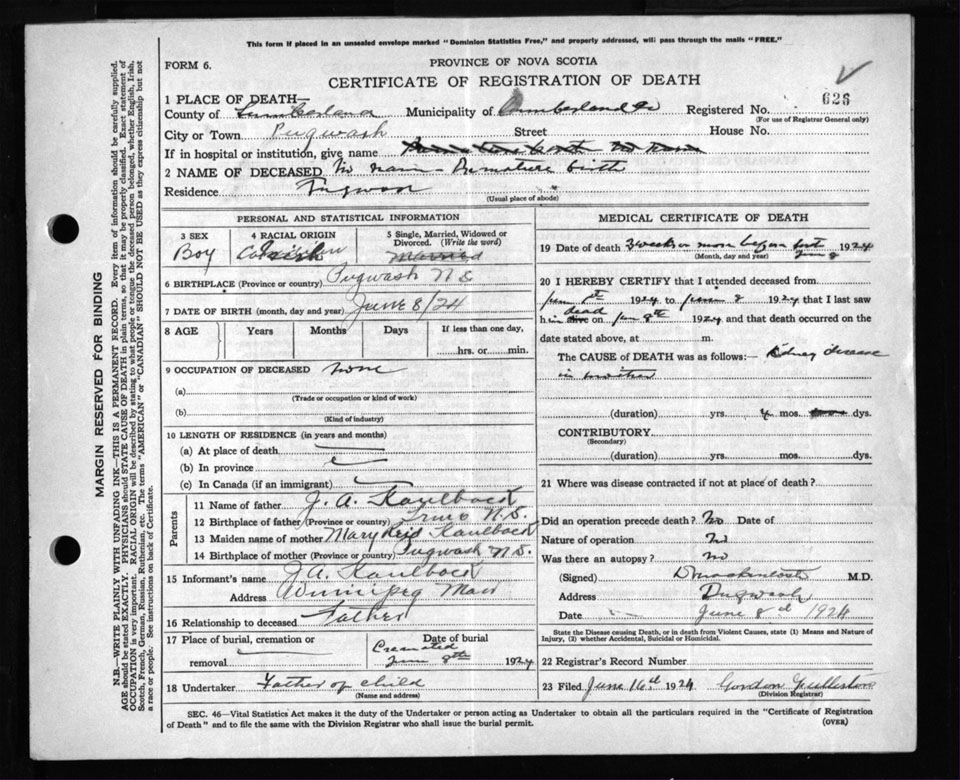 This form if placed in an unsealed envelope marked "Dominion Statistics Free," and properly addressed, will pass through the mails "FREE."
FORM 6.
PROVINCE OF NOVA SCOTIA
CERTIFICATE OF REGISTRATION OF DEATH
1 PLACE OF DEATH—
County of Cumberland Municipality of Cumberland Co Registered No. 626
(For use of Registrar General only)
City or Town Pugwash Street House No.
If in hospital or institution, give name
2 NAME OF DECEASED No name - Premature birth
Residence Pugwash
(Usual place of abode)
PERSONAL AND STATISTICAL INFORMATION
3 SEX 4 RACIAL ORIGIN 5 Single, Married, Widowed or Divorced. (Write the word)
Boy
6 BIRTHPLACE (Province or country) Pugwash N S
7 DATE OF BIRTH (month, day and year) June 8/24
8 AGE Years Months Days If less than one day,
hrs. or min.
9 OCCUPATION OF DECEASED None
(a)
(Trade or occupation or kind of work)
(b)
(Kind of industry)
10 LENGTH OF RESIDENCE (in years and months)
(a) At place of death
(b) In province
(c) In Canada (if an immigrant)
Parents
11 Name of father J. A. Kaulback
12 Birthplace of father (Province or country) Truro N.S.
13 Maiden name of mother Mary Reid Kaulback
14 Birthplace of mother (Province or country) Pugwash N.S.
15 Informant's name J A. Kaulback
Address Winnipeg Man
16 Relationship to deceased Father
17 Place of burial, cremation or removal Date of burial
Cremated
June 8th 1924
18 Undertaker Father of child
(Name and address)
MEDICAL CERTIFICATE OF DEATH
19 Date of death 3 weeks or more before birth June 8 1924
(Month, day and year)
20 I HEREBY CERTIFY that I attended deceased from
1924 to June 8 1924 that I last saw
h im dead on June 8th 1924 and that death occurred on the
date stated above, at m.
The CAUSE of DEATH was as follows:— Kidney disease
in mother
(duration) yrs. 4 mos. dys.
CONTRIBUTORY
(Secondary)
(duration) yrs. mos. dys.
21 Where was disease contracted if not at place of death?
Did an operation precede death? No Date of
Nature of operation No
Was there an autopsy? No
(Signed) M.D.
Address Pugwash
Date June 8th 1924
State the Disease causing Death, or in death from Violent Causes, state (1) Means and Nature of Injury, (2) whether Accidental, Suicidal or Homicidal.
22 Registrar's Record Number
23 Filed June 16th 1924 Gordon
(Division Registrar)
SEC. 46—Vital Statistics Act makes it the duty of the Undertaker or person acting as Undertaker to obtain all the particulars required in the "Certificate of Registration
of Death" and to file the same with the Division Registrar who shall issue the burial permit. (OVER)
MARGIN RESERVED FOR BINDING
N.B.—WRITE PLAINLY WITH UNFADING INK—THIS IS A PERMANENT RECORD. Every item of information should be carefully supplied.
AGE should be stated EXACTLY. PHYSICIANS should STATE CAUSE OF DEATH in plain terms, so that it may be properly classified. Exact statement of
OCCUPATION is very important. RACIAL ORIGIN will be described by stating to what people or tongue the deceased person belonged, whether English, Irish,
Scotch, French, German, Russian, Ruthenian, etc. The terms "AMERICAN" or "CANADIAN" SHOULD NOT BE USED as they express citizenship but not
a race or people. See instructions on back of Certificate.